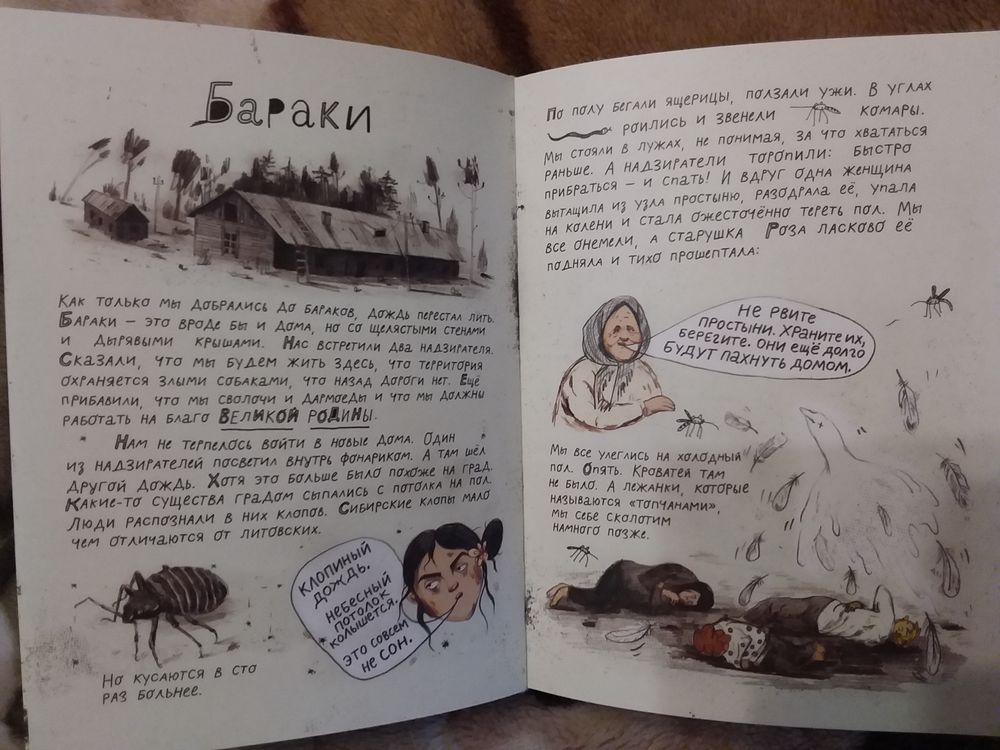 Бараки
Как только мы добрались до бараков, дождь перестал лить.
Бараки – это вроде бы и дома, но со щелястыми стенами
и дырявыми крышами. Нас встретили два надзирателя.
Сказали, что мы будем жить здесь, что территория
охраняется злыми собаками, что назад дороги нет. Ещё
прибавили, что мы сволочи и дармоеды и что мы должны
работать на благо Великой родины.
Нам не терпелось войти в новые дома. Один
из надзирателей посветил внутрь фонариком. А там шёл
другой дождь. Хотя это больше было похоже на град.
Какие-то существа градом сыпались с потолка на пол.
Люди распознали в них клопов. Сибирские клопы мало
чем отличаются от литовских.
Клопиный
дождь.
Небесный
потолок
колышется.
Это совсем
не сон.
Но кусаются в сто
раз больнее.
По полу бегали ящерицы, ползали ужи. В углах
роились и звенели комары.
Мы стояли в лужах, не понимая, за что хвататься
раньше. А надзиратели торопили: быстро
прибраться – и спать! И вдруг одна женщина
вытащила из узла простыню, разодрала её, упала
на колени и стала ожесточённо тереть пол. Мы
все онемели, а старушка Роза ласково её
подняла и тихо прошептала:
Не рвите
простыни. Храните их,
берегите. Они ещё долго
будут пахнуть домом.
Мы все улеглись на холодный
пол. Опять. Кроватей там
не было. А лежанки, которые
называются «топчанами»,
мы себе сколотим
намного позже.